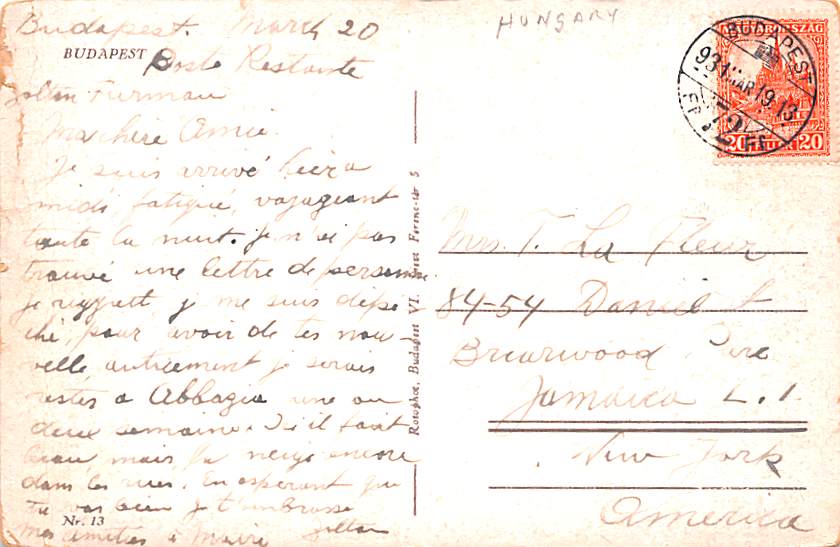 Budapest. March 20
HUNGARY
BUDAPEST
Poste Restante
Zoltan Furman
Ma chère Amie
Je suis arrivé hier a
midi, fatigué, voyageant
toute la nuit. je n'ai pas
trouvé une lettre de personne
je regrett je me suis dépe-
ché, pour avoir de tes nou-
velle autrement je serais
restés a Abbazia une ou
deux semaine. Ici il fait
beau mais la neige encore
dans les rues. En esperant que
tu vas bien je t'embrasse
mes amitiés à Marie Zoltan
Nr. 13
Rotophot, Budapest VI. Ferenc-tér 5
MAGYARORSZÁG
20 FILLÉR 20
BUDAPEST
931 MAR 19 13
72
Mrs. T. La Fleur
84-54 Daniel St
Briarwood
Jamaica L. I.
New York
America